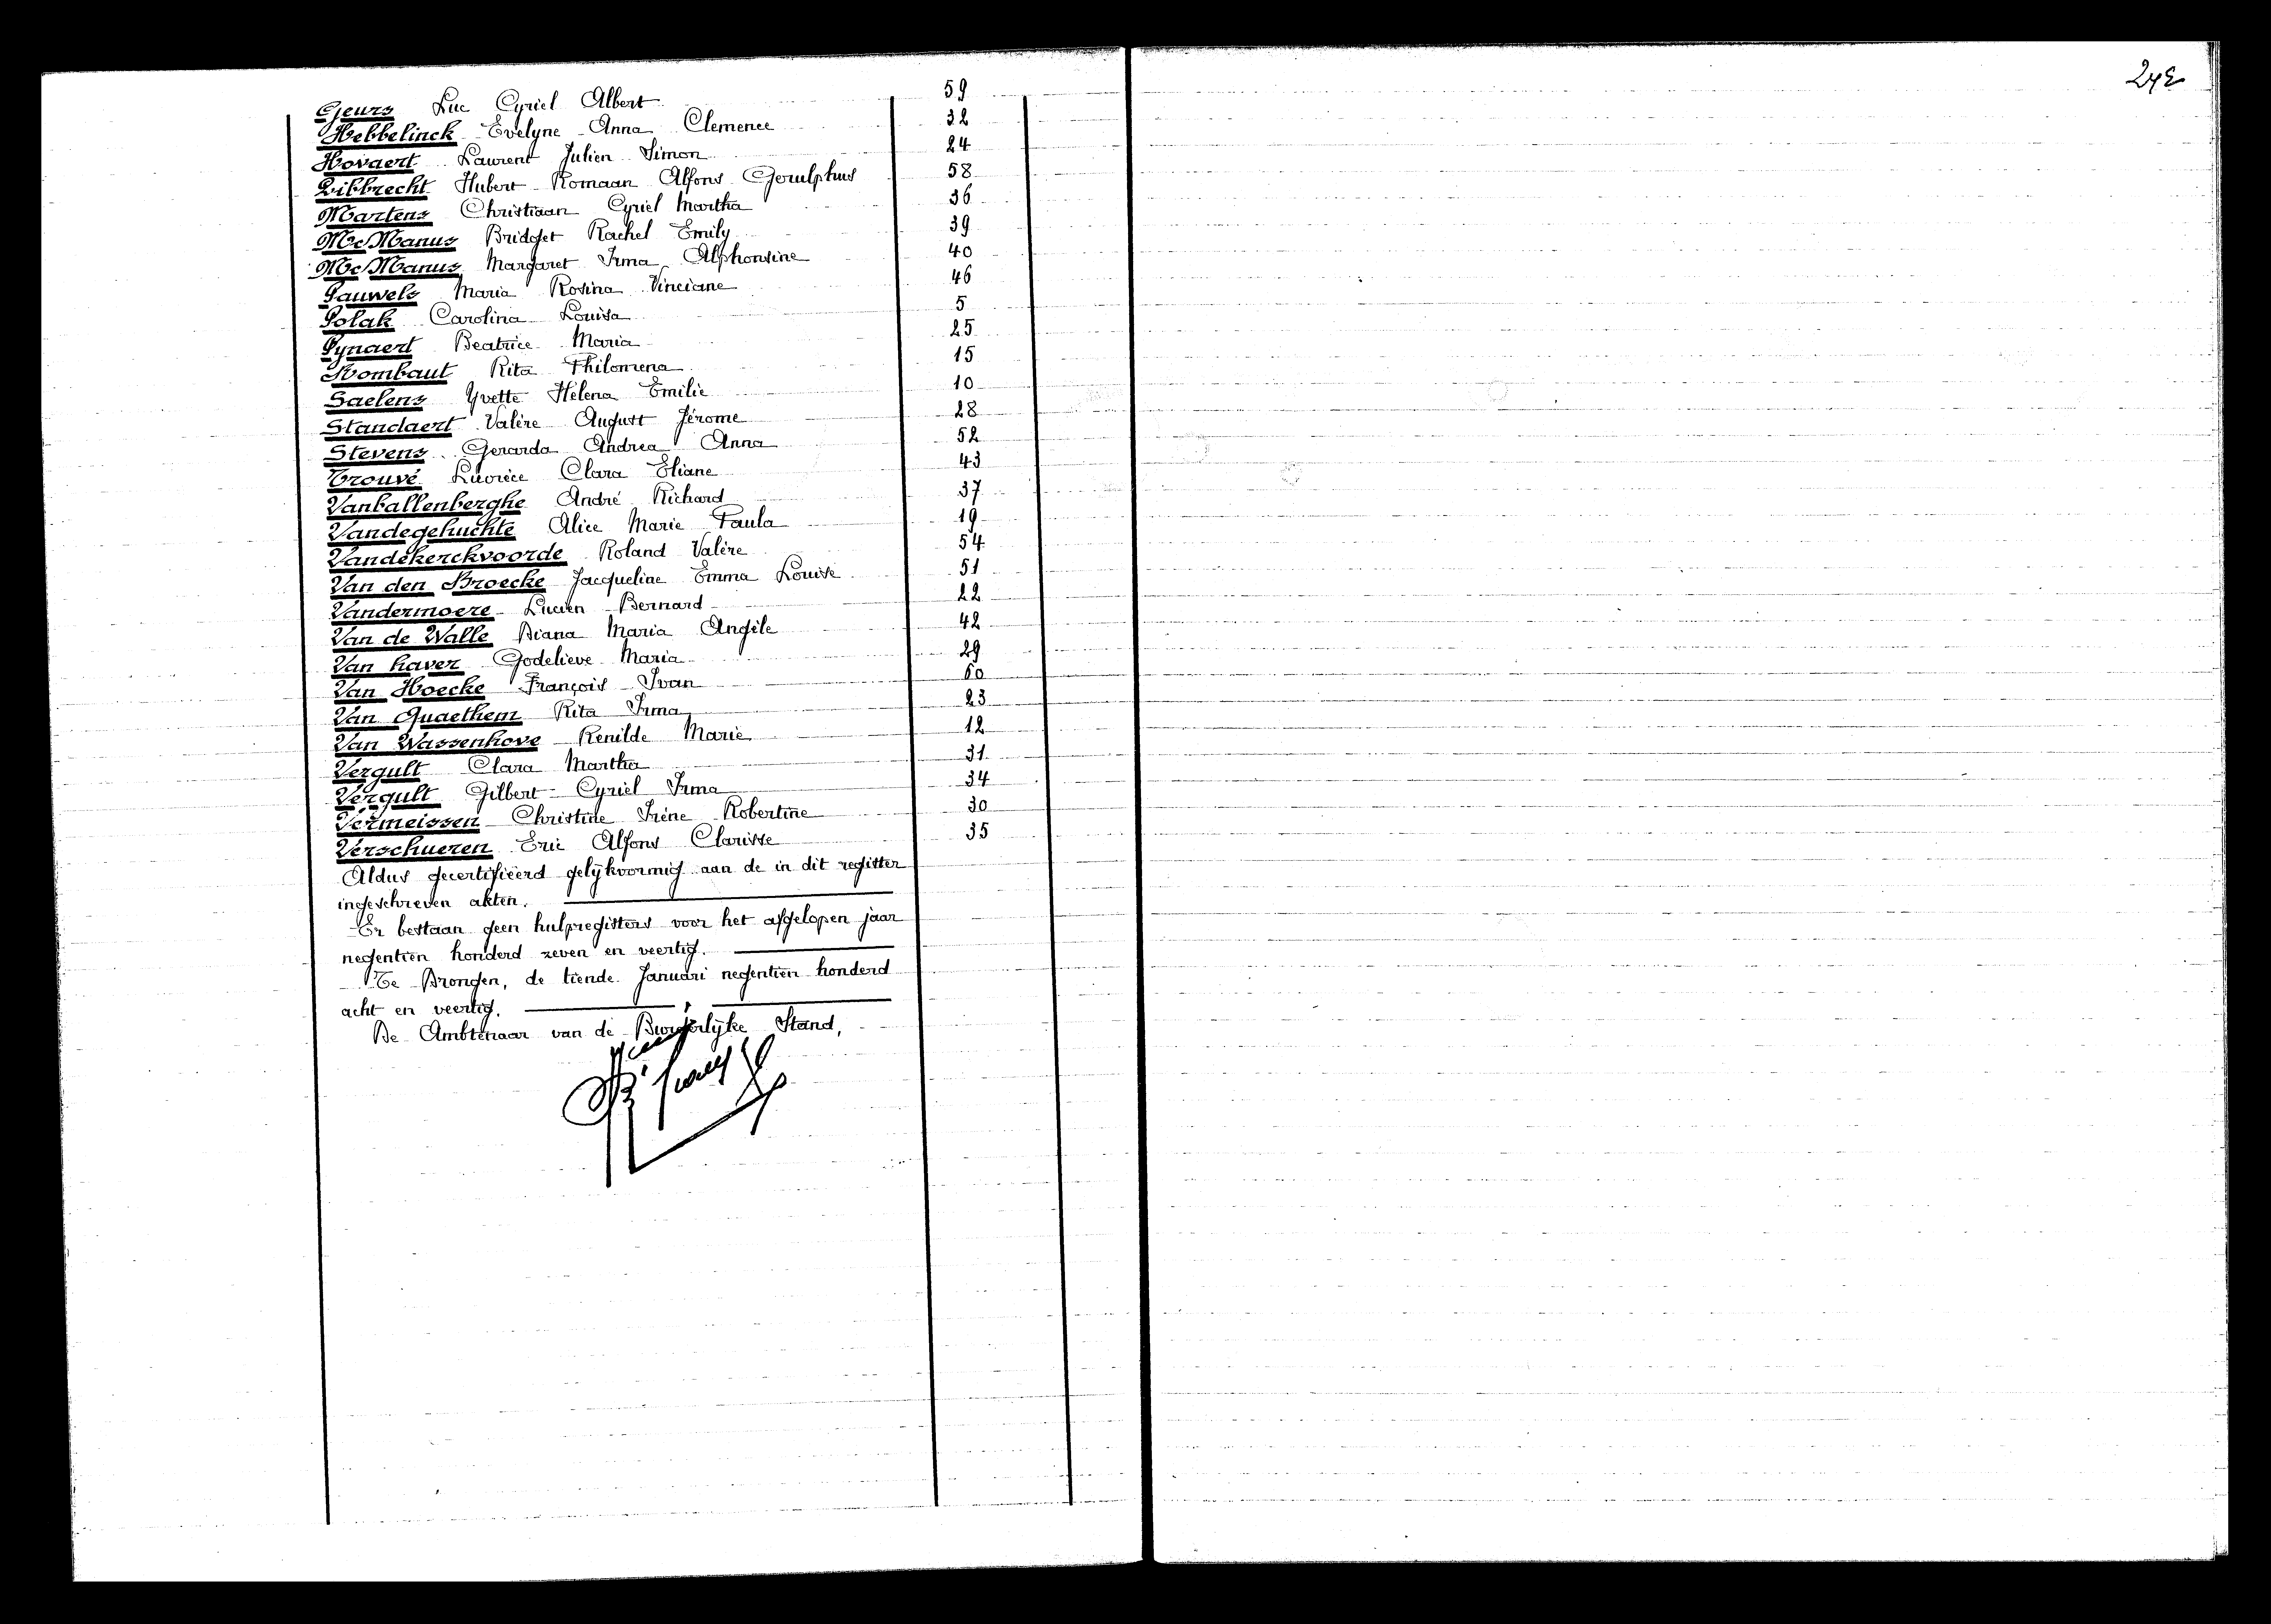 Geurs Luc Cyriel Albert 59
Hebbelinck Evelyne Anna Clemence 32
Hovaert Laurent Julien Simon 24
Libbrecht Hubert Romaan Alfons Gerulphus 58
Martens Christiaan Cyriel Martha 36
McManus Bridget Rachel Emily 39
McManus Margaret Irma Alphonsine 40
Pauwels Maria Rosina Vinciane 46
Polak Carolina Louisa 5
Pynaert Beatrice Maria 25
Rombaut Rita Philomena 15
Saelens Yvette Helena Emilie 10
Standaert Valère August Jérome 28
Stevens Gerarda Andrea Anna 52
Trouvé Clara Eliane 43
Vanballenberghe André Richard 37
Vandegehuchte Alice Marie Paula 19
Vandekerckvoorde Roland Valère 54
Van den Broecke Jacqueline Emma Louise 51
Vandermoere Lucien Bernard 22
Van de Walle Diana Maria Angèle 42
Van haver Godelieve Maria 29
Van Hoecke François Ivan 60
Van Quaethem Rita Irma 23
Van Wassenhove Renilde Marie 12
Vergult Clara Martha 31
Vergult Gilbert Cyriel Irma 34
Vermeissen Christine Irène Robertine 30
Verschueren Eric Alfons Clarisse 35
Aldus gecertifieerd gelijkvormig aan de in dit register
ingeschreven akten.
Er bestaan geen hulpregisters voor het afgelopen jaar
negentien honderd zeven en veertig.
Te Drongen, de tiende Januari negentien honderd
acht en veertig.
De Ambtenaar van de Burgerlijke Stand,